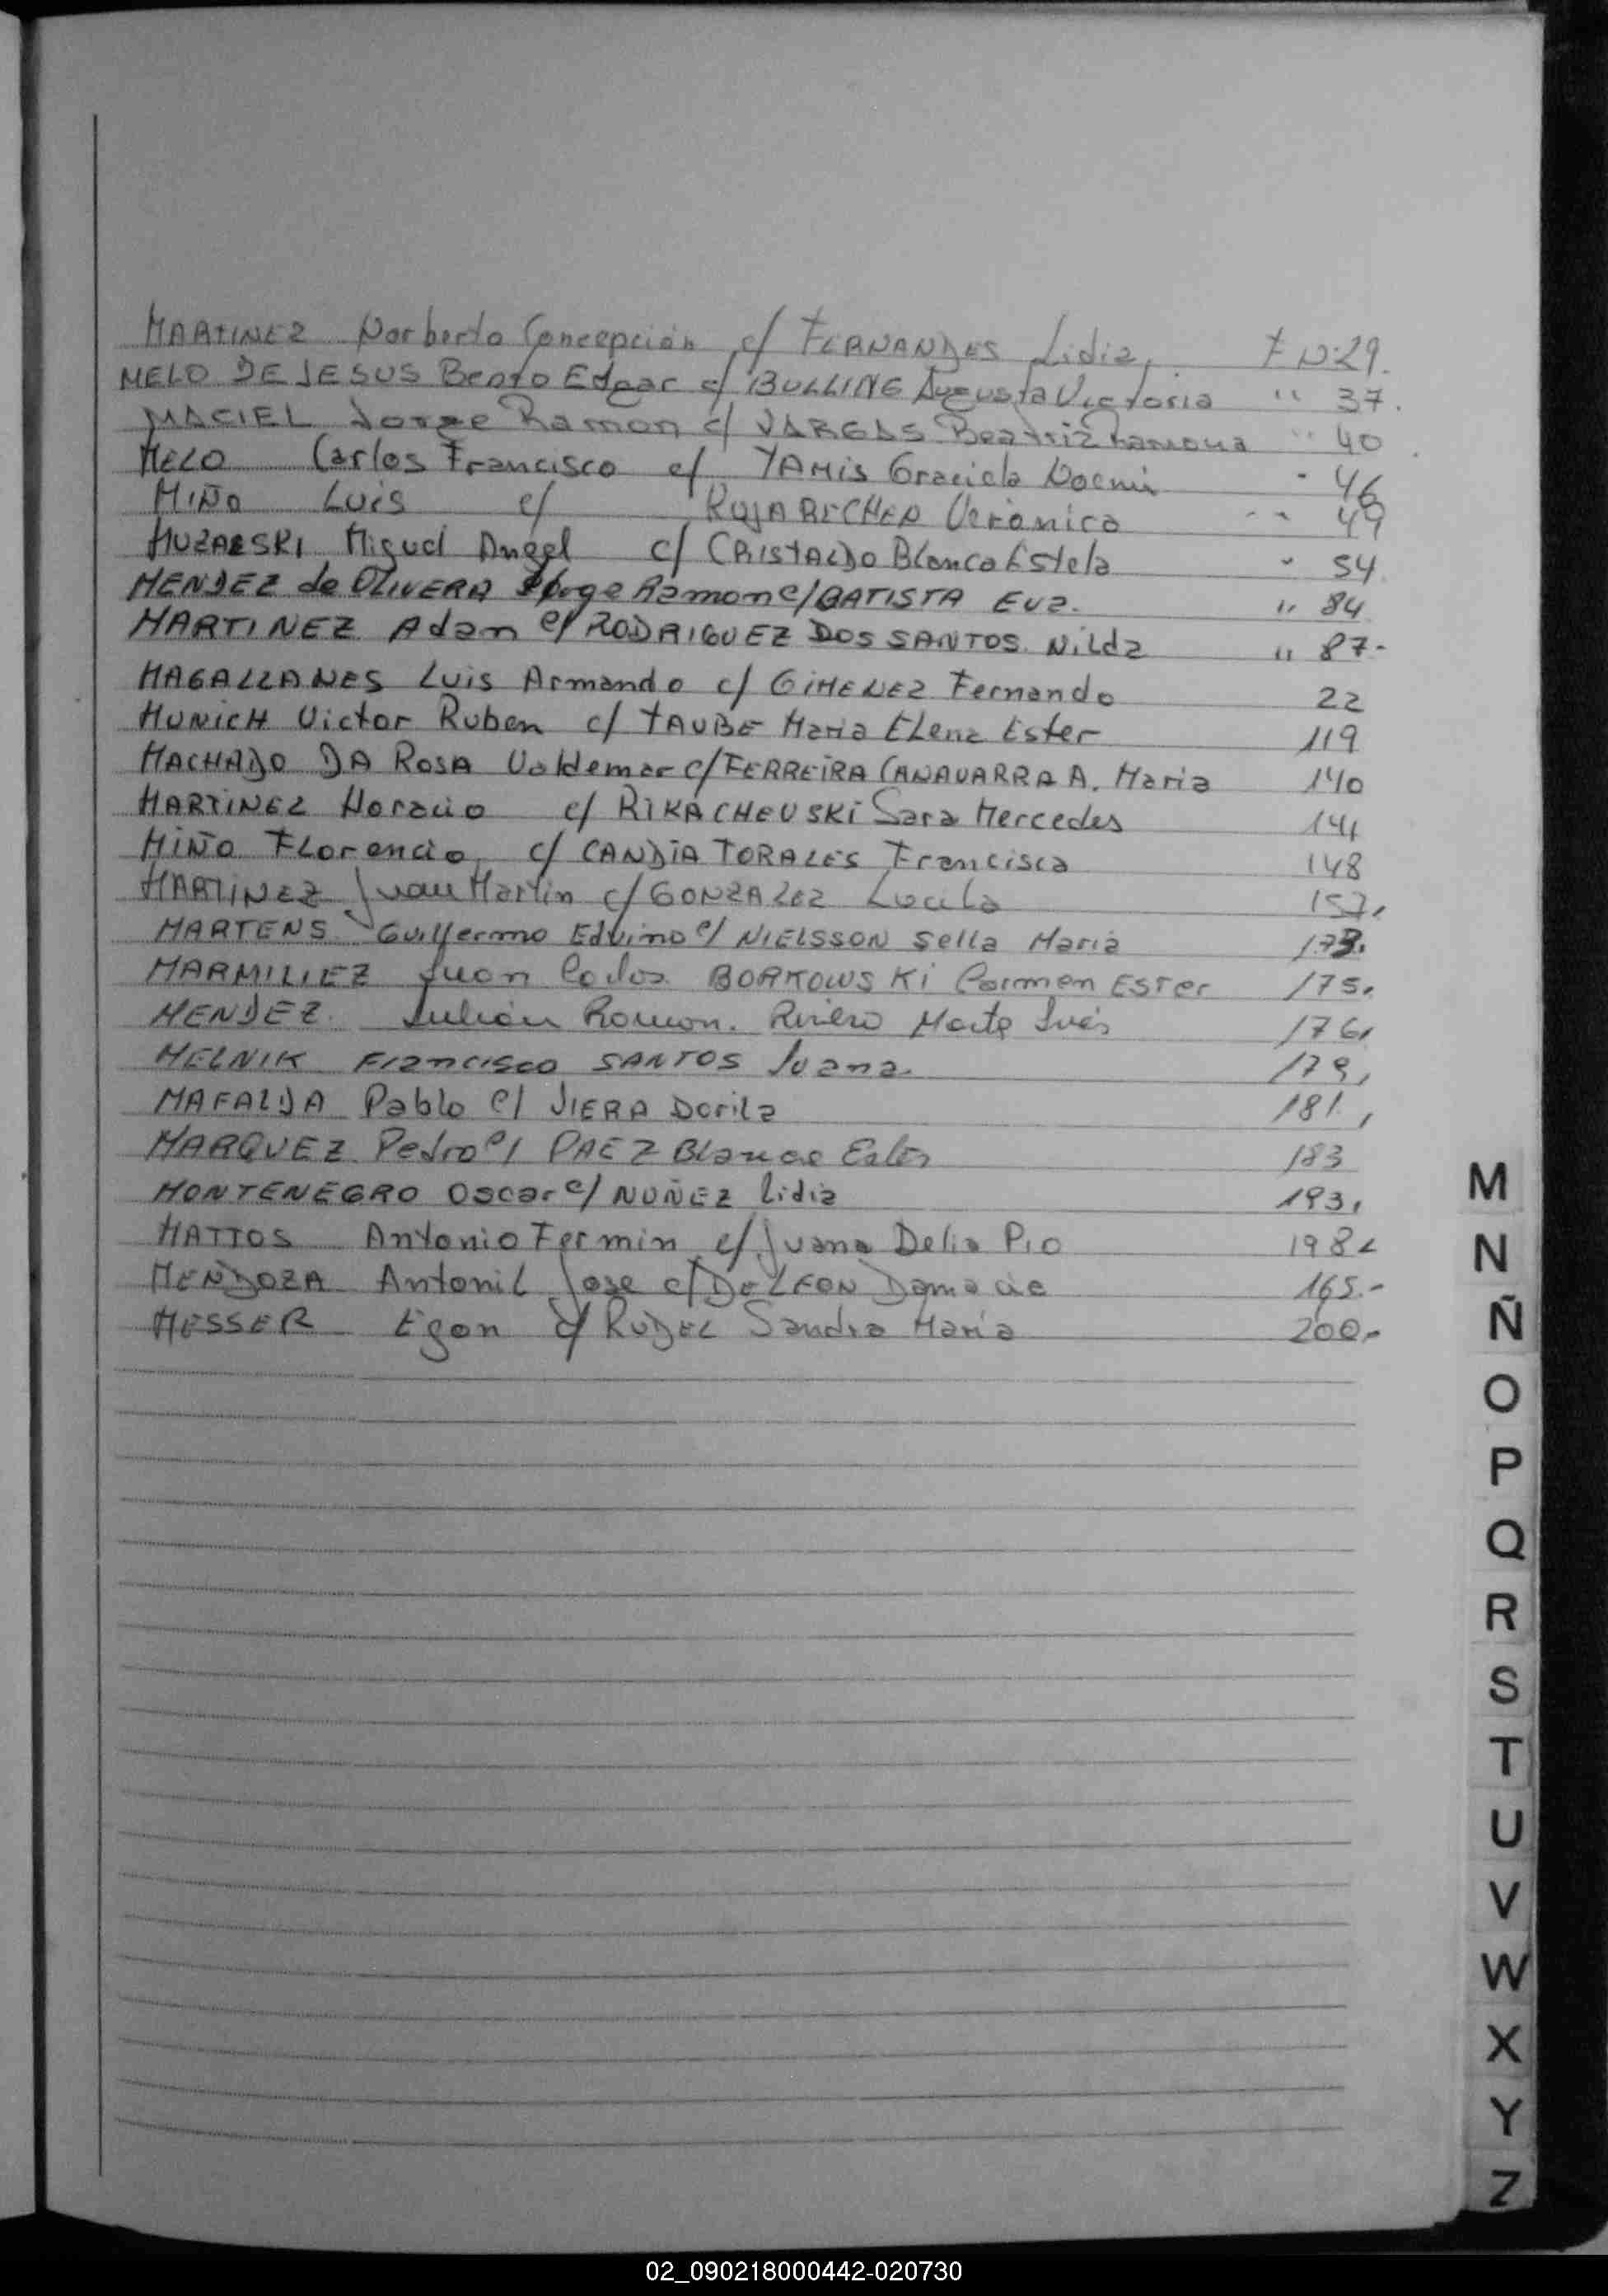 MARTINEZ Norberto Concepción c/ FERNANDES Lidia, F Nº 29.
MELO DE JESUS Bento Edgar c/ BULLING Augusta Victoria " 37.
MACIEL Jorge Ramon c/ VARGAS Beatriz Ramona " 40
MELO Carlos Francisco c/ YAMIS Graciela Noemi - 46
MIÑO Luis c/ Verónica " 49
Miguel Angel c/ CRISTALDO Blanca Estela " 54
MENDEZ de OLIVERA Jorge Ramon c/ BATISTA Eva. " 84
MARTINEZ Adan c/ RODRIGUEZ DOS SANTOS Nilda " 87-
MAGALLANES Luis Armando c/ GIMENEZ Fernando 22
MUNICH Victor Ruben c/ TAUBE Maria Elena Ester 119
MACHADO DA ROSA Valdemar c/ FERREIRA CANAVARRA A. Maria 140
MARTINEZ Horacio c/ RIKACHEVSKI Sara Mercedes 141
MIÑO Florencio, c/ CANDIA TORALES Francisca 148
MARTINEZ Juan Martin c/ GONZALEZ Lucila 157,
MARTENS Guillermo Edvino c/ NIELSSON Sella Maria 173.
MARMILIEZ Juan Carlos BORKOWSKI Carmen ESTer 175.
MENDEZ Julián Ramon. Riviero Marta Inés 176,
MELNIK Francisco SANTOS Juana. 179,
MAFALDA Pablo c/ VIERA Dorila 181,
MARQUEZ Pedro c/ PAEZ Blanca Ester 183
MONTENEGRO Oscar c/ NUÑEZ Lidia 193,
MATTOS Antonio Fermin c/ Juana Delia Pio 198
MENDOZA Antonil Jose c/ DE LEON 165.-
MESSER Egon c/ RUDEL Sandra Maria 200.-
M
N
Ñ
O
P
Q
R
S
T
U
V
W
X
Y
Z
02_090218000442-020730